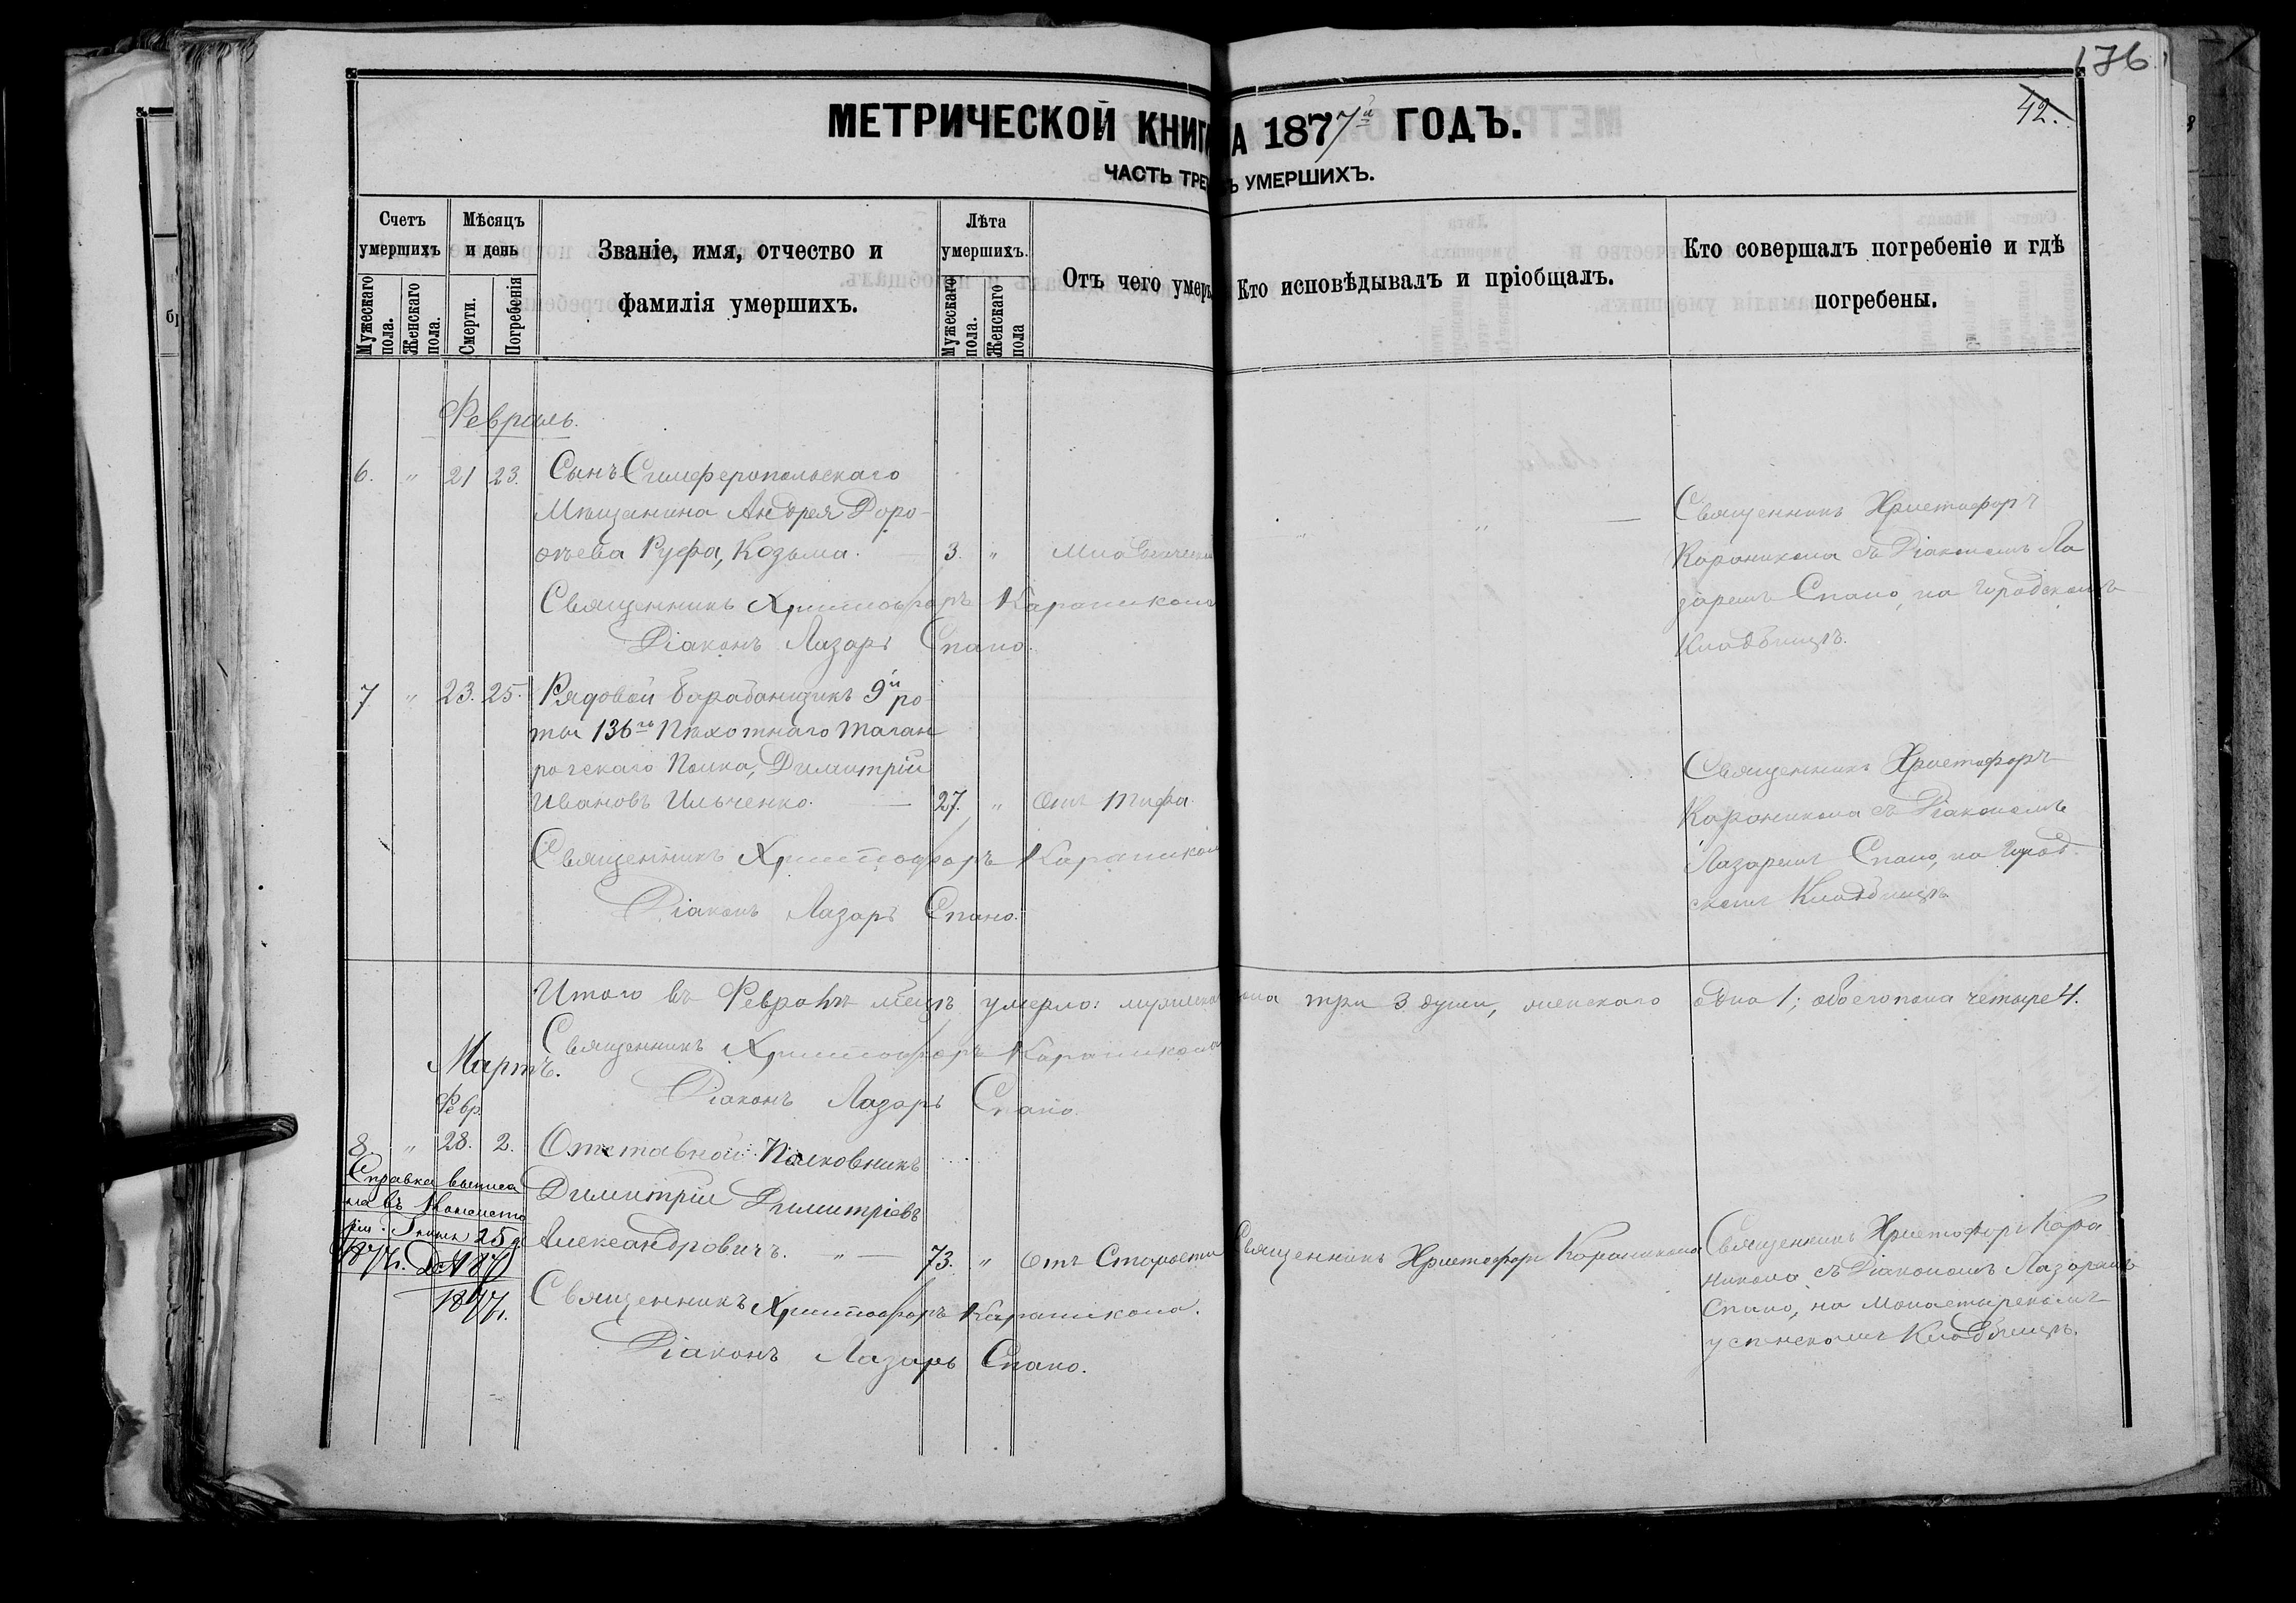 176
42.
МЕТРИЧЕСКОЙ КНИГ А 1877й ГОДЪ.
ЧАСТЬ ТРЕ Ъ УМЕРШИХЪ.
Счетъ умершихъ
Мужескаго пола.
Женскаго пола.
Мѣсяцъ и день
Смерти.
Погребенія
Званіе, имя, отчество и
фамилія умершихъ.
Лѣта умершихъ.
Мужескаго пола.
Женскаго пола
Отъ чего умеръ
Кто исповѣдывалъ и пріобщалъ.
Кто совершалъ погребеніе и гдѣ
погребены.
Февраль.
6. " 21 23. Сынъ Симферопольскаго
Мѣщанина Андрея Доро-
ѳѣева Руфа, Козьма. — 3. "
Священникъ Христофоръ
Караникола съ Діакономъ Ла
заремъ Спано, на Городскомъ
Кладбищѣ.
Священникъ Христофоръ Караникола
Діаконъ Лазарь Спано.
7 " 23. 25. Рядовой барабанщикъ 9й ро
ты 136го Пѣхотнаго Таган
рогскаго Полка, Димитрій
Ивановъ Ильченко. — 27. " Отъ тифа.
Священникъ Христофоръ
Караникола съ Діакономъ
Лазаремъ Спано, на Город
скомъ Кладбищѣ
Священникъ Христофоръ Караникола
Діаконъ Лазарь Спано.
Итого въ Февралѣ мѣцѣ умерло: мужеска пола три 3 души, женскаго одна 1; обоего пола четыре 4.
Священникъ Христофоръ Караникола
Мартъ.
Діаконъ Лазарь Спано.
Февр.
8. " 28. 2. Отставной Полковникъ
Димитрій Димитріевъ
Александровичъ. " — 73. " Отъ Старости
Священникъ Христофоръ Караникола
Священникъ Христофоръ Кара
никола съ Діакономъ Лазаремъ
Спано, на Монастырскомъ
успенскомъ Кладбищѣ.
Справка выписа
на въ Консисто
рію. 25
1877г.
1877г.
Священникъ Христофоръ Караникола.
Діаконъ Лазарь Спано.